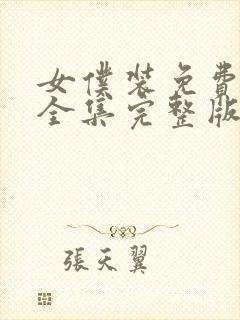 女僕裝免費
全集完整版
張天翼